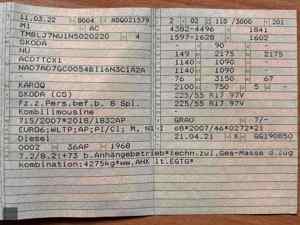 11.03.22 8004 ADQ021379 2 02 110 /3000 201
M1 AC 4382-4496 1841
TMBLJ7NU1N5020220 4 1597-1628 1602
SKODA - 90 -
NU 149 2175 2175
ACDTTCX1 1140 1090 -
1140 1090 -
76 3150 67
KAROQ 2100 750 5 -
SKODA (CS) 225/55 R17 97V
Fz.z.Pers.bef.b. 8 Spl. 225/55 R17 97V
Kombilimousine -
715/2007*2018/1832AP GRAU 7/-
EURO6;WLTP;AP;PI/CI; M, N1 I 68*2007/46*0272*21
Diesel 21.04.21 K GG190850
0002 36AP 1968
7.2/8.2:+73 b.Anhängebetrieb*techn.zul.Ges-Masse d.Zug
kombination:4275kg*ww.AHK lt.EGTG*